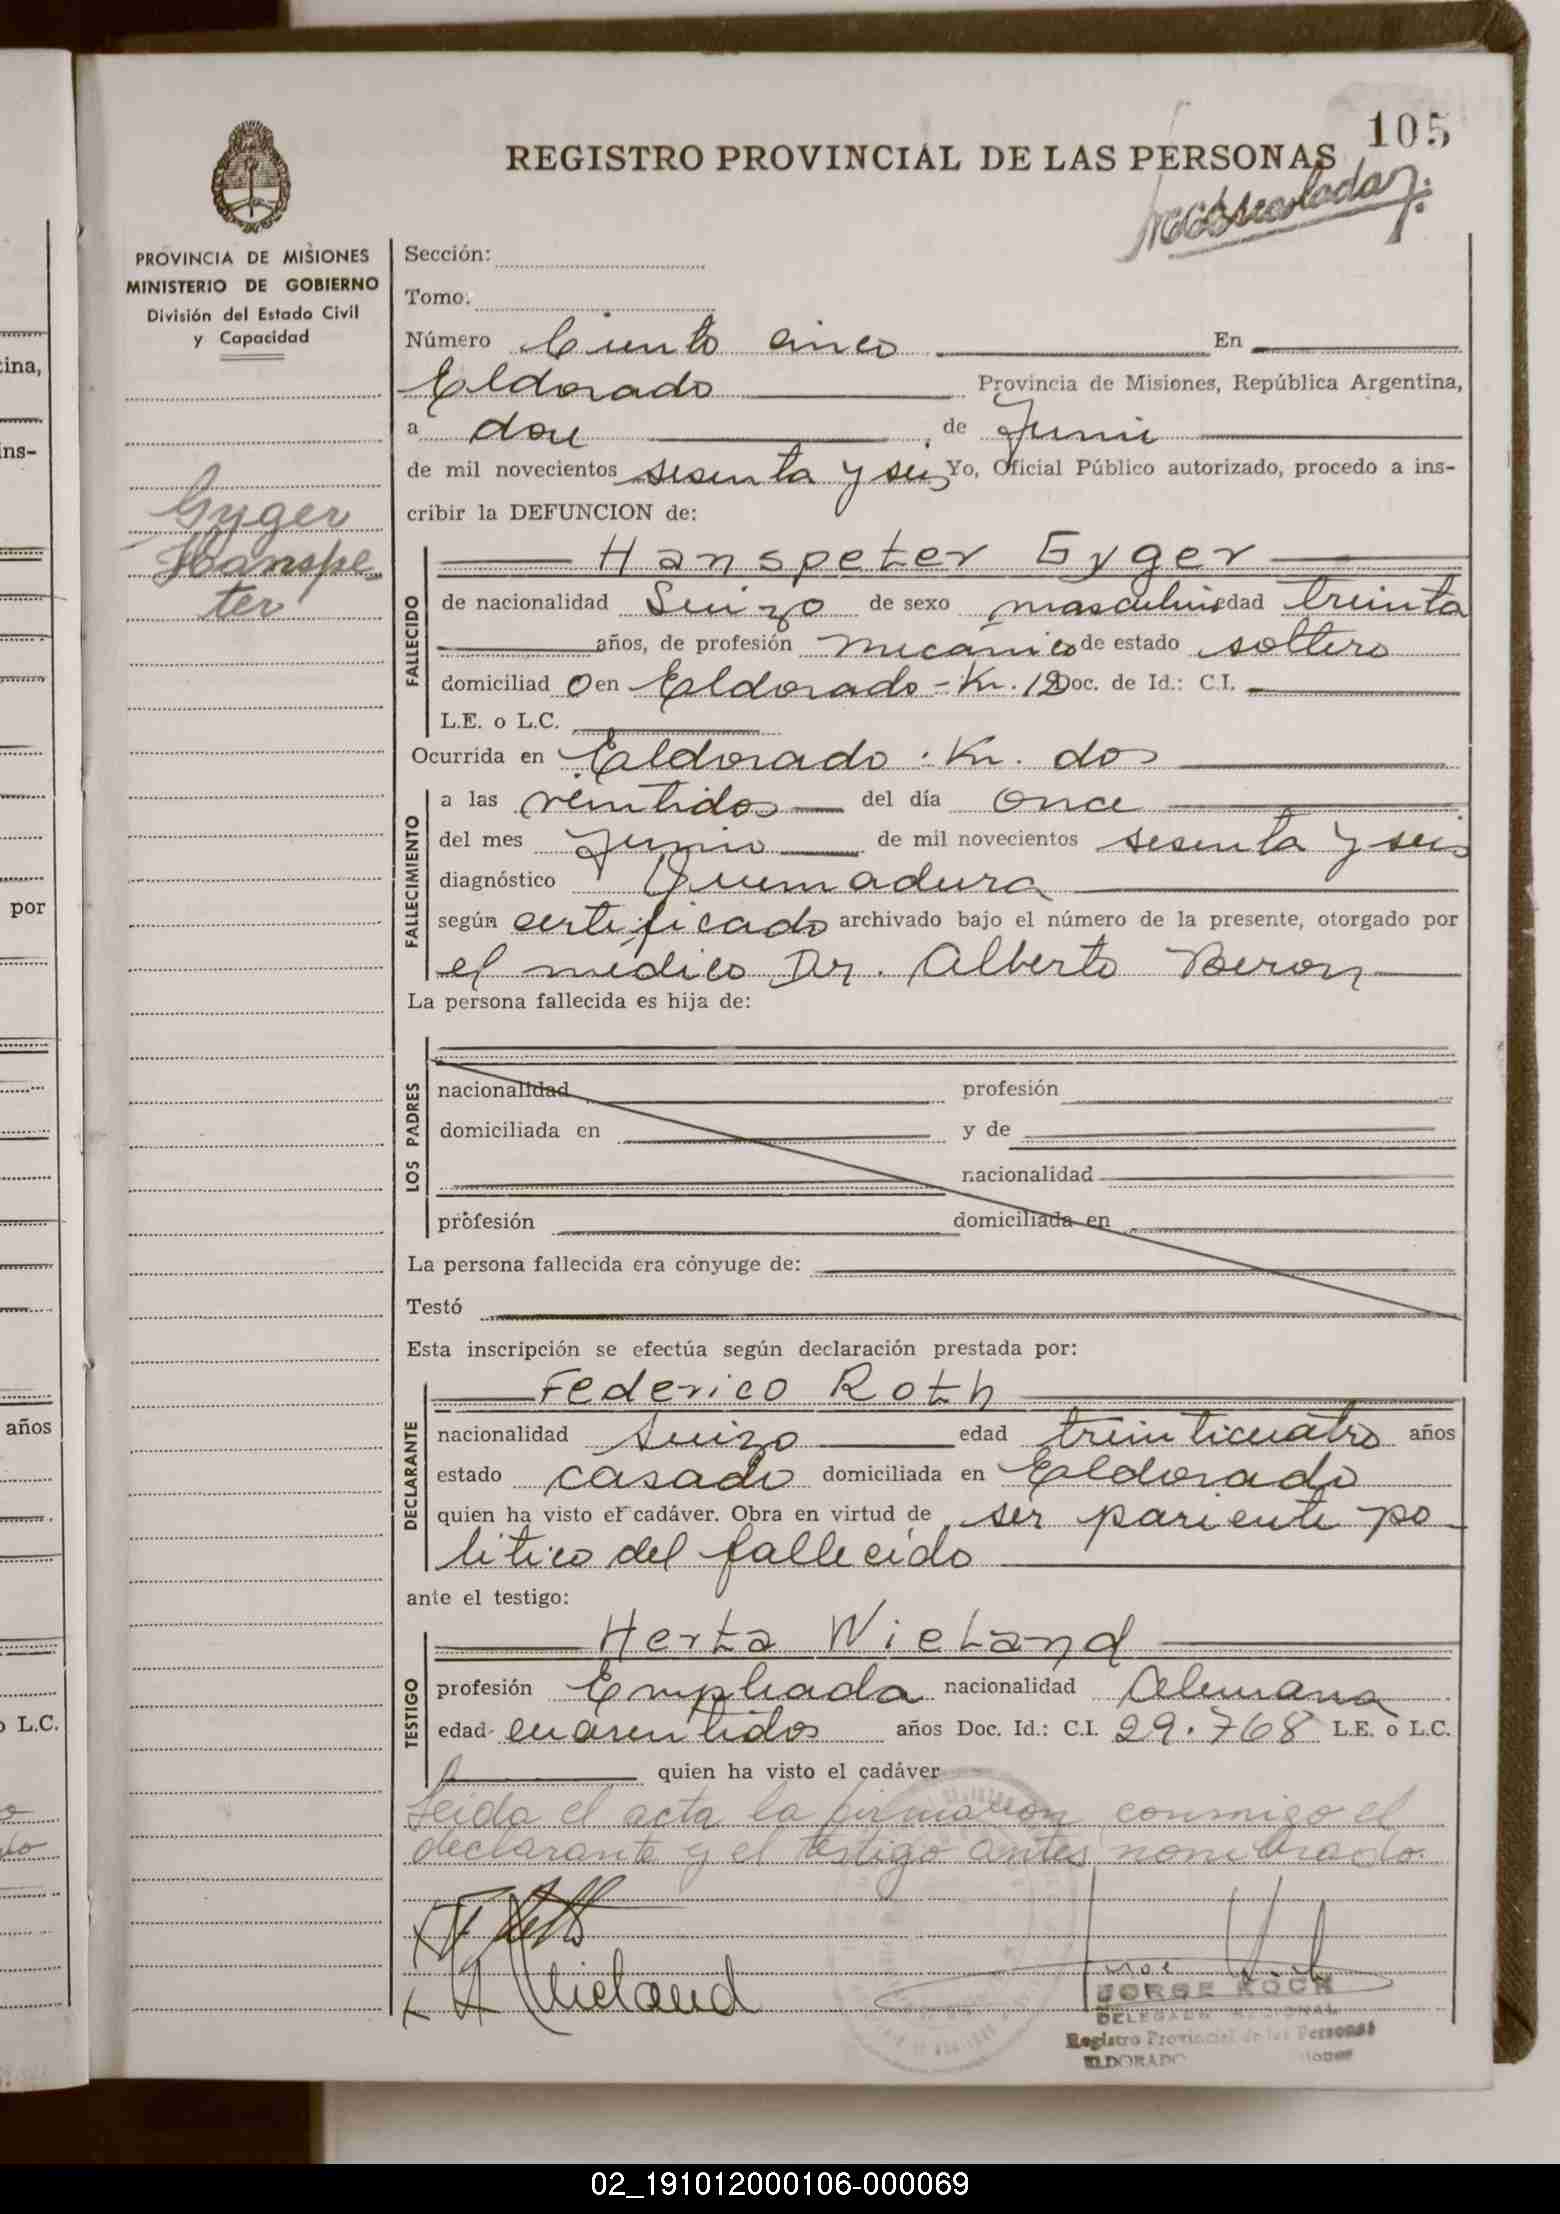 105
REGISTRO PROVINCIAL DE LAS PERSONAS
PROVINCIA DE MISIONES
MINISTERIO DE GOBIERNO
División del Estado Civil
y Capacidad
Gyger
Hanspe-
ter
Sección:
Tomo:
Número Ciento cinco En
Eldorado Provincia de Misiones, República Argentina,
a doce de Junio
de mil novecientos sesenta y seis Yo, Oficial Público autorizado, procedo a ins-
cribir la DEFUNCION de:
FALLECIDO
Hanspeter Gyger
de nacionalidad Suizo de sexo masculino edad treinta
años, de profesión mecánico de estado soltero
domiciliad o en Eldorado - Km. 12 Doc. de Id.: C.I.
L.E. o L.C.
Ocurrida en Eldorado. Km. dos
FALLECIMIENTO
a las veintidos del día once
del mes Junio de mil novecientos sesenta y seis
diagnóstico Quemadura
según certificado archivado bajo el número de la presente, otorgado por
el médico Dr. Alberto Beron
La persona fallecida es hija de:
LOS PADRES
nacionalidad profesión
domiciliada en y de
nacionalidad
profesión domiciliada en
La persona fallecida era cónyuge de:
Testó
Esta inscripción se efectúa según declaración prestada por:
DECLARANTE
Federico Roth
nacionalidad Suizo edad treinticuatro años
estado casado domiciliada en Eldorado
quien ha visto el cadáver. Obra en virtud de ser pariente po-
litico del fallecido
ante el testigo:
TESTIGO
Herta Wieland
profesión Empleada nacionalidad Alemana
edad cuarentidos años Doc. Id.: C.I. 29.768 L.E. o L.C.
quien ha visto el cadáver
Leida el acta la firmaron conmigo el
declarante y el testigo antes nombrado.
F Roth
H Wieland
JORGE KOCH
DELEGADO
Registro Provincial de las Personas
ELDORADO
cina,
ins-
por
años
o L.C.
02_191012000106-000069